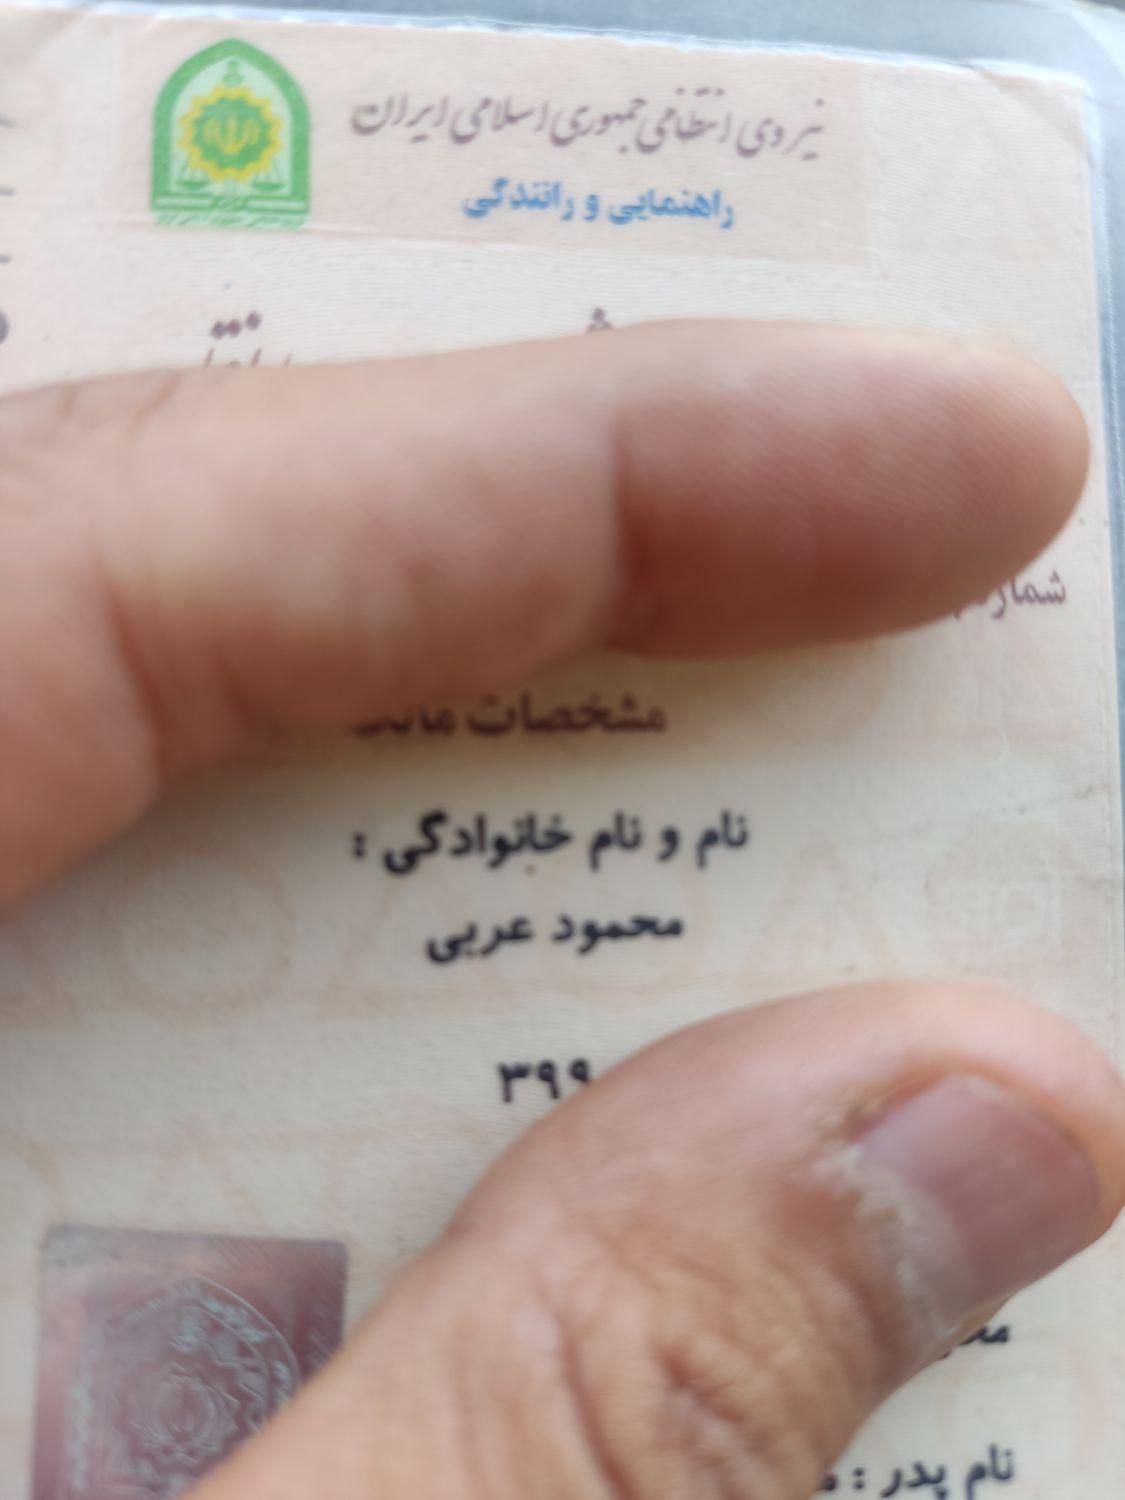 نیروی انتظامی جمهوری اسلامی ایران
راهنمایی و رانندگی
مشخصات مالک
نام و نام خانوادگی :
محمود عربی
۳۹۹
نام پدر :